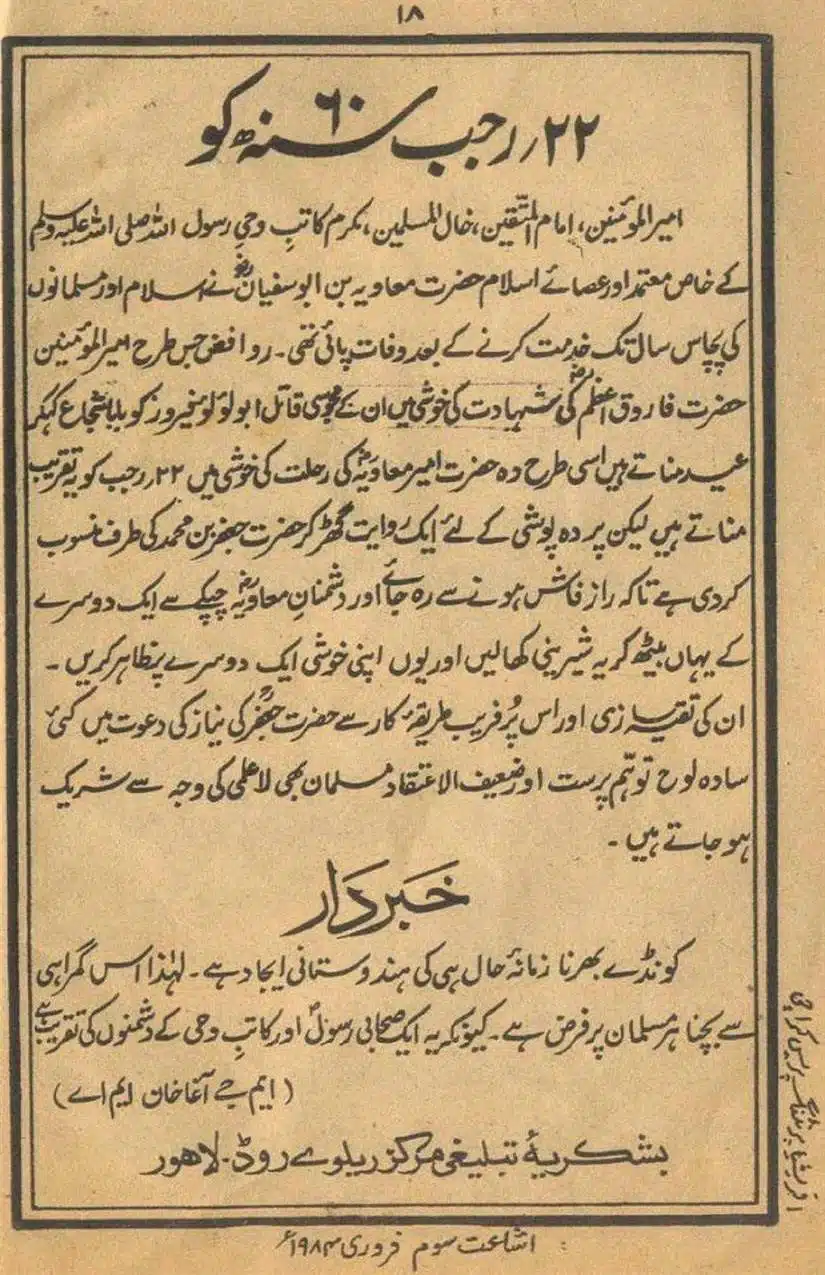 ۱۸
۲۲؍رجب ۶۰ سنہ ھ کو
امیرالمؤمنین، امام المتّقین، خال المسلمین، مکرم کاتبِ وحیِ رسول اللہ صلی اللہ علیہ وسلم
کے خاص معتمد اور عصائے اسلام حضرت معاویہ بن ابوسفیانؓ نے اسلام اور مسلمانوں
کی پچاس سال تک خدمت کرنے کے بعد وفات پائی تھی۔ روافض جس طرح امیرالمؤمنین
حضرت فاروق اعظمؓ کی شہادت کی خوشی میں ان کے مجوسی قاتل ابولوٴلوٴ فیروز کو بابا شجاع کہکر
عید مناتے ہیں اسی طرح وہ حضرت امیر معاویہؓ کی رحلت کی خوشی میں ۲۲؍رجب کو یہ تقریب
مناتے ہیں لیکن پردہ پوشی کے لئے ایک روایت گھڑ کر حضرت جعفر بن محمد کی طرف منسوب
کردی ہے تاکہ راز فاش ہونے سے رہ جائے اور دشمنانِ معاویہؓ چپکے سے ایک دوسرے
کے یہاں بیٹھ کر یہ شیرینی کھالیں اور یوں اپنی خوشی ایک دوسرے پر ظاہر کریں۔
ان کی تقیہ سازی اور اس پُر فریب طریقۂ کار سے حضرت جعفرؒ کی نیاز کی دعوت میں کئی
سادہ لوح توہّم پرست اور ضعیف الاعتقاد مسلمان بھی لاعلمی کی وجہ سے شریک
ہوجاتے ہیں۔
خبردار
کونڈے بھرنا زمانۂ حال ہی کی ہندوستانی ایجاد ہے۔ لہٰذا اس گمراہی
سے بچنا ہر مسلمان پر فرض ہے۔ کیونکہ یہ ایک صحابی رسولؐ اور کاتبِ وحی کے دشمنوں کی تقریب ہے
(ایم جے آغا خان ایم اے)
بشکریۂ تبلیغی مرکز ریلوے روڈ۔ لاہور
اشاعت سوم فروری ۱۹۸۴ء
پریس کراچی